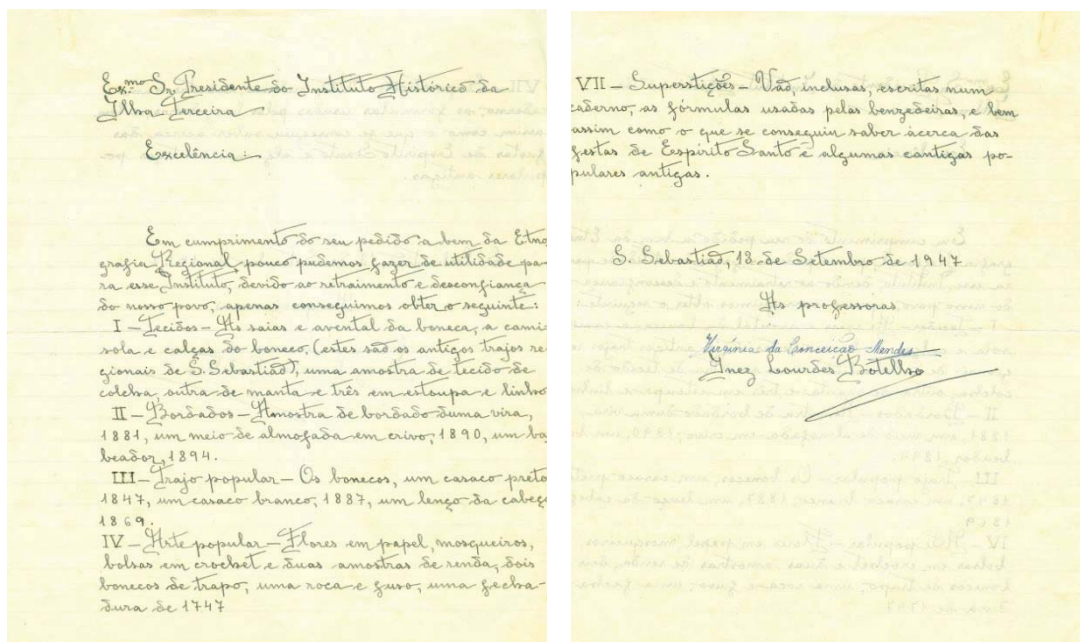 Ex.mo Sr. Presidente do Instituto Histórico da
Ilha Terceira
Excelência:
Em cumprimento do seu pedido a bem da Etno
grafia Regional pouco pudemos fazer de utilidade pa-
ra esse Instituto, devido ao retraimento e desconfiança
do nosso povo, apenas conseguimos obter o seguinte:
I — Tecidos — As saias e avental da boneca, a cami
sola e calças do boneco, (estes são os antigos trajos re
gionais de S. Sebastião), uma amostra de tecido de
colcha, outra de manta e três em estoupa e linho
II — Bordados — Amostra de bordado duma vira,
1881, um meio de almofada em crivo, 1890, um ba
beador, 1894.
III — Trajo popular — Os bonecos, um casaco preto
1847, um casaco branco, 1887, um lenço da cabeça
1869.
IV — Arte popular — Flores em papel, mosqueiros,
bolsas em crochet e duas amostras de renda, dois
bonecos de trapo, uma roca e fuso, uma fecha-
dura de 1747
VII — Superstições — Vão, inclusas, escritas num
caderno, as fórmulas usadas pelas benzedeiras, e bem
assim como o que se conseguiu saber ácerca das
festas de Espírito Santo e algumas cantigas po-
pulares antigas.
S. Sebastião, 18 de Setembro de 1947
As professoras
Virgínia da Conceição Mendes
Inez Lourdes Botelho